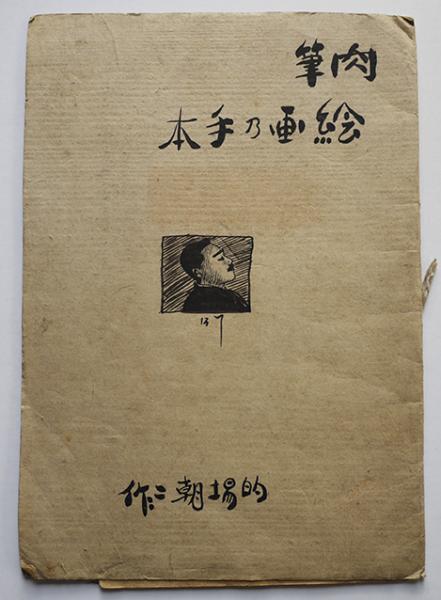 肉筆
絵画乃手本
的場朝二作